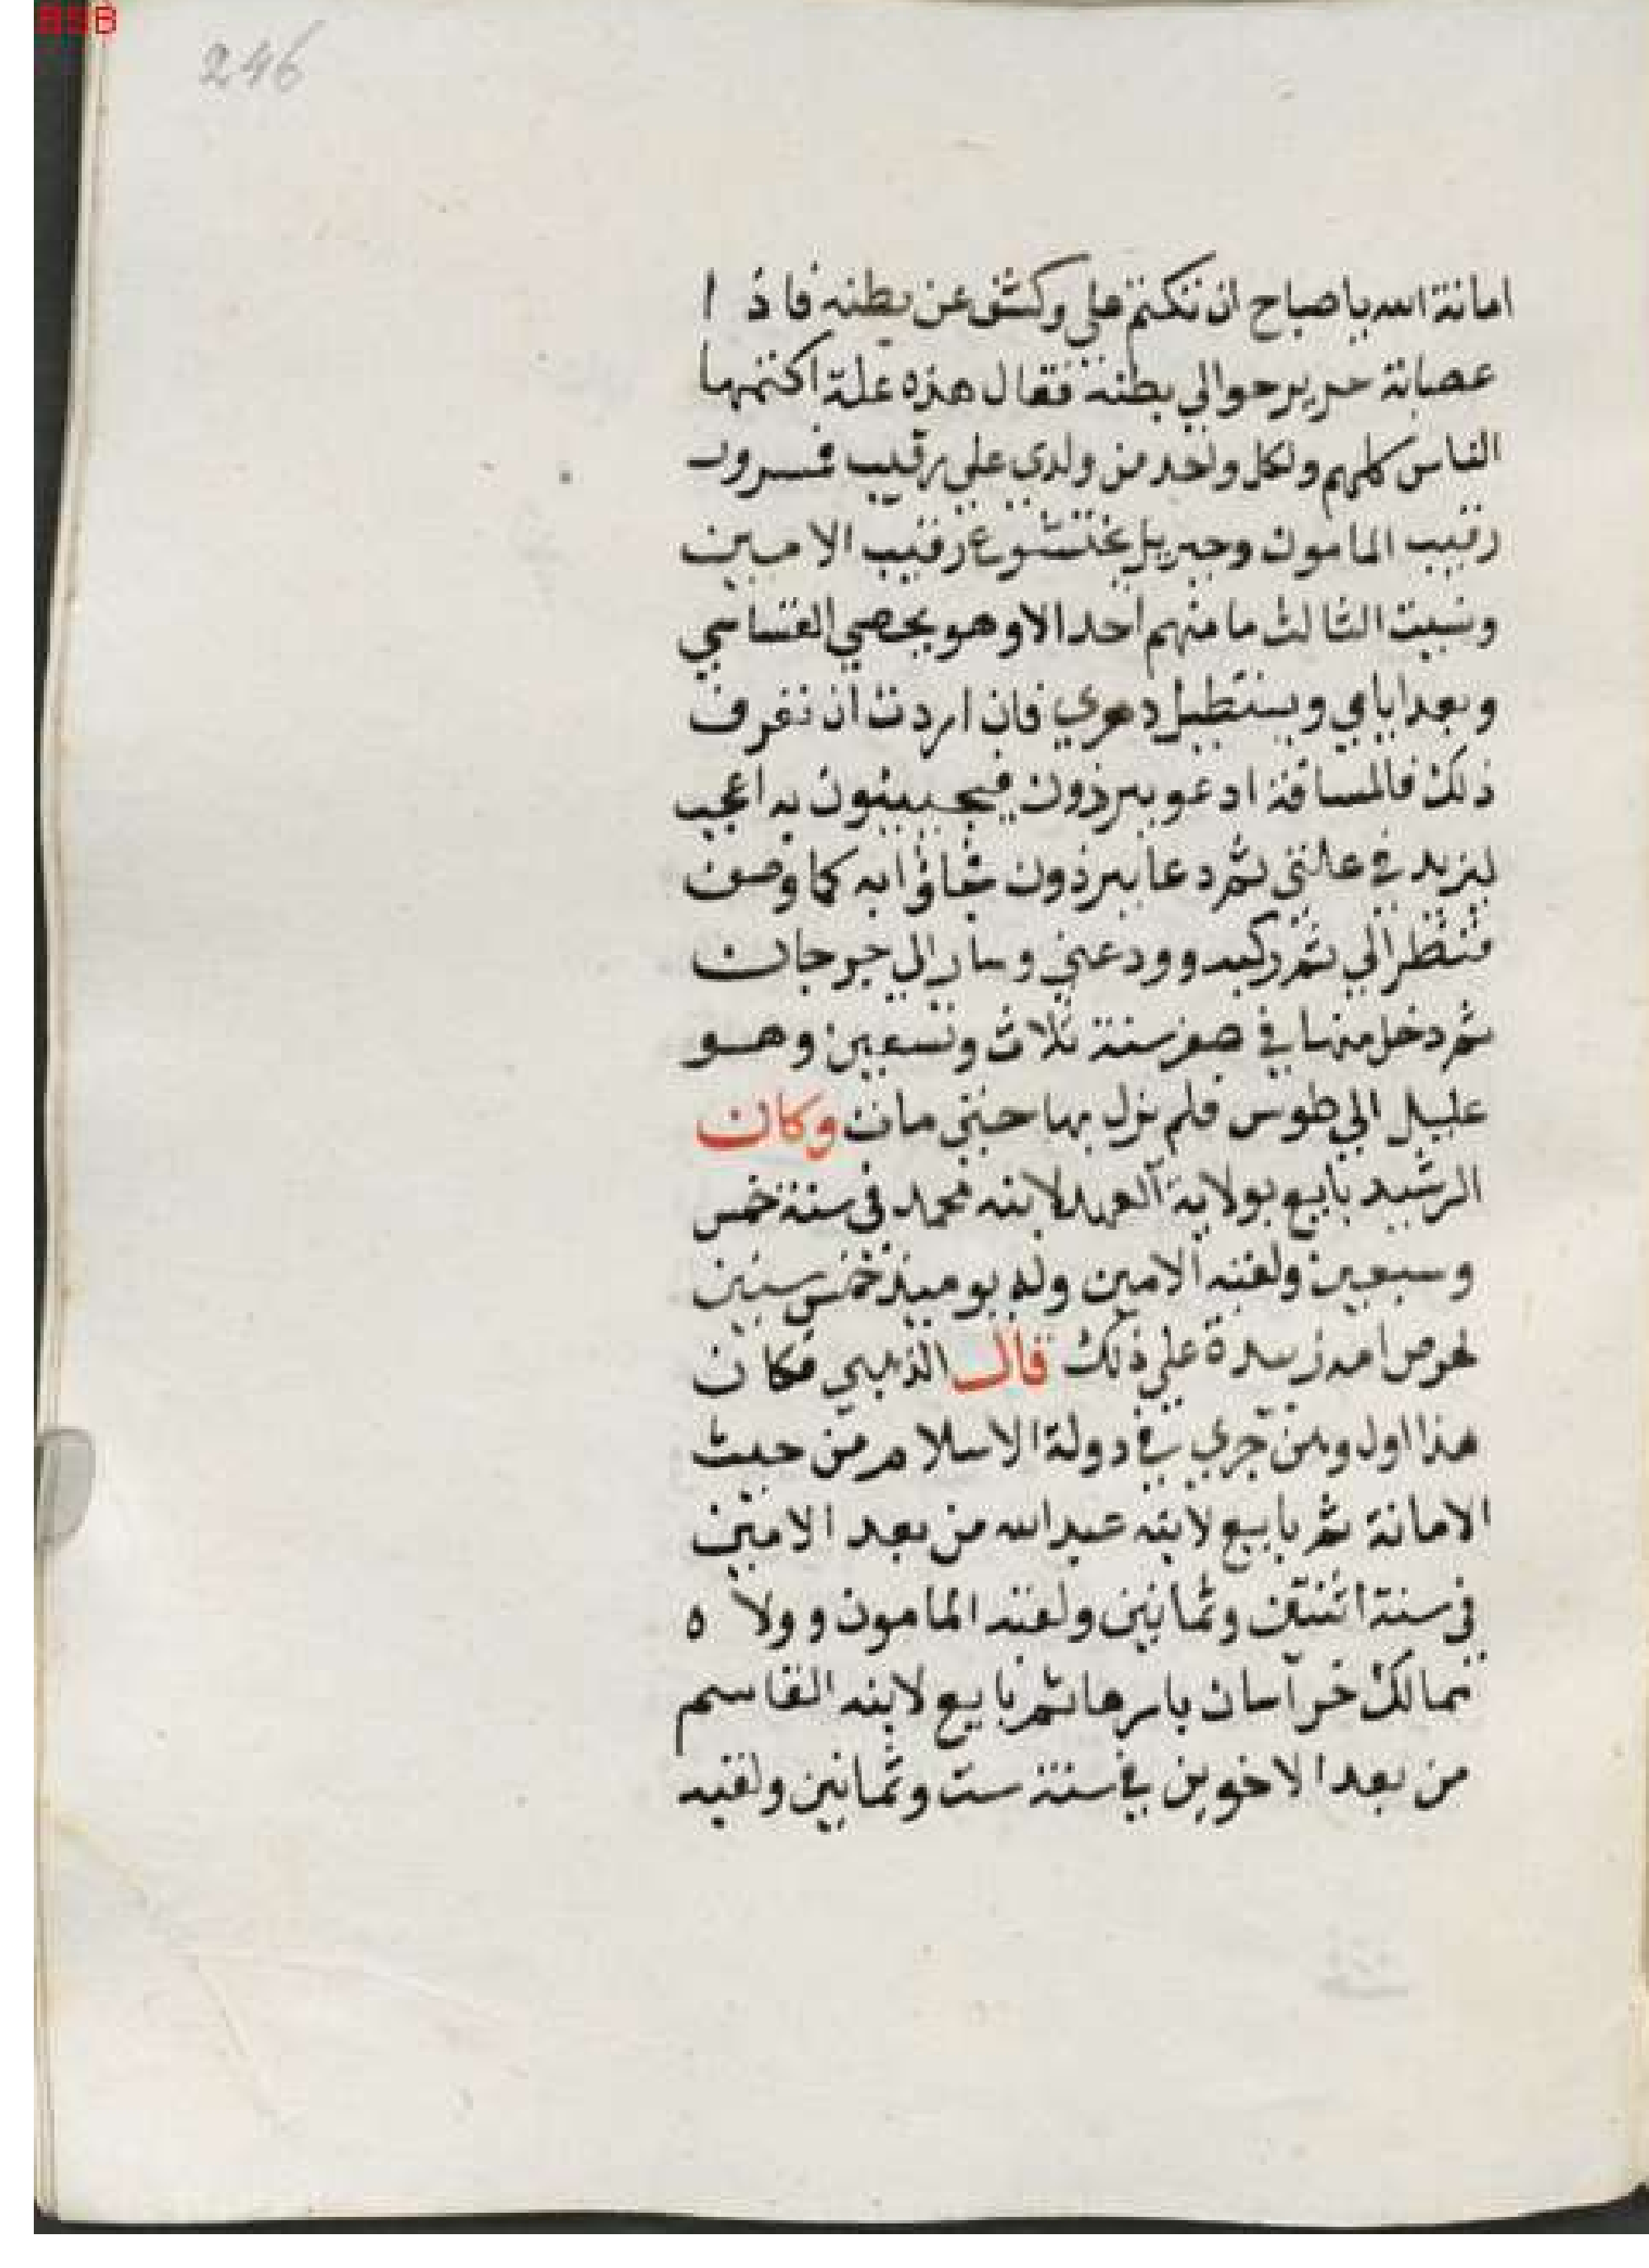 BSB
246
امانة الله ياصباح ان تكتم علي وكشف عن بطنه فاذا
عصابة حرير حوالي بطنه فقال هذه علة اكتمها
الناس كلهم ولكل واحد من ولدي علي رقيب فمسرور
رقيب المامون وجبريل بختشوع رقيب الامين
ونسيت الثالث ما منهم احد الا وهو يحصي انفاسي
ويعد ايامي ويستطيل دهري فان اردت ان تعرف
ذلك فالمساقة ادعو ببرذون فيجيبئون به اعجب
ليزيد في علتي ثم دعا ببرذون فجاؤا به كما وصف
فنظر الي ثم ركبه وودعني وسار الي جرجان
ثم دخل منها في صفر سنة ثلاث وتسعين وهو
عليل الي طوس فلم يزل بها حتي مات وكان
الرشيد بايع بولاية العهد لابنه محمد في سنة خمس
وسبعين ولقبه الامين وله يوميذ خمس سنين
لحرص امه زبيدة علي ذلك قال الذهبي فكان
هذا اول وهن جري في دولة الاسلام من حيث
الامانة ثم بايع لابنه عبد الله من بعد الامين
في سنة اثنتين وثمانين ولقبه المامون وولاه
ممالك خراسان باسرها ثم بايع لابنه القاسم
من بعد الاخوين في سنة ست وثمانين ولقبه